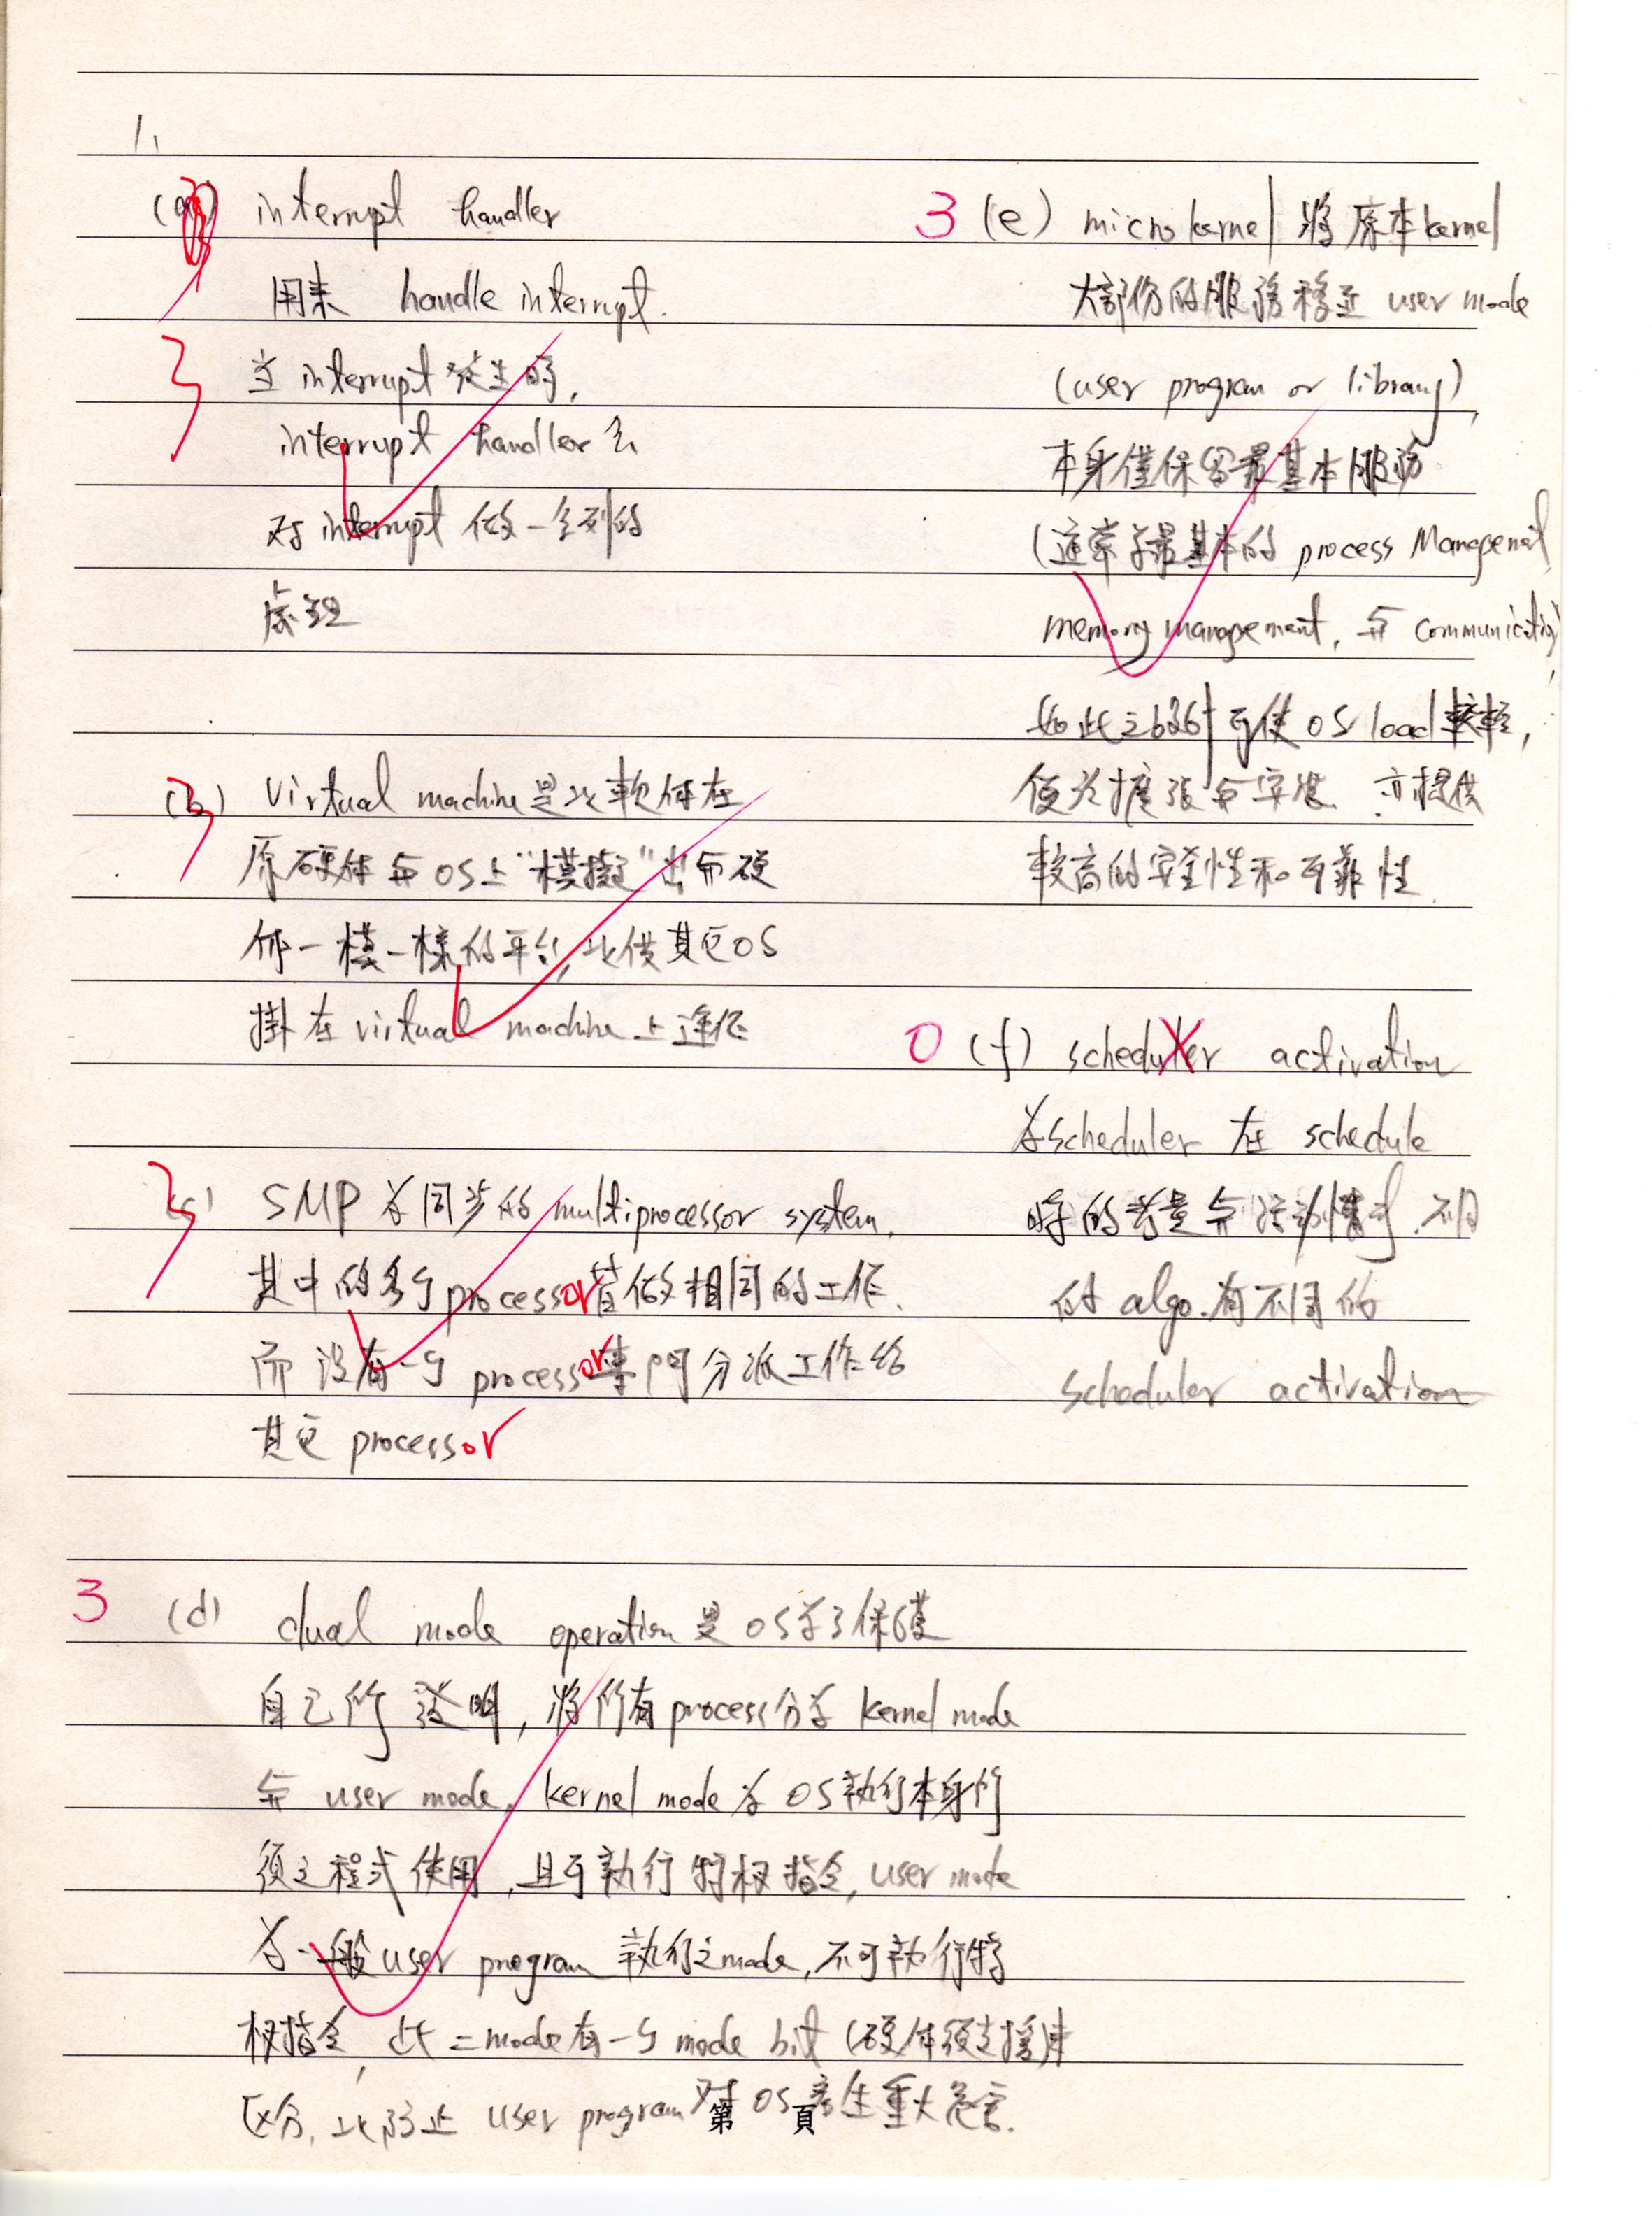 1.
(a) interrupt handler
用來 handle interrupt.
3 当 interrupt 發生時,
interrupt handler 会
对 interrupt 做一系列的
處理
3 (b) Virtual machine 是以軟体在
原硬体与OS上"模擬"出与硬
体一模一樣的平台,以供其它OS
掛在 virtual machine 上運作
3 (c) SMP 为同步的 multiprocessor system,
其中的多个 processor 皆做相同的工作,
而沒有一个 processor 專門分派工作給
其它 processor
3 (d) dual mode operation 是 OS为了保護
自己所發明, 將所有 process 分为 kernel mode
与 user mode, kernel mode 为 OS執行本身所
須之程式使用, 且可執行特权指令, user mode
为一般 user program 執行之mode, 不可執行特
权指令, 此二mode有一个 mode bit (硬体須支援)來
区分, 以防止 user program 对 OS 產生重大危害.
3 (e) microkernel 將原本kernel
大部份的服務移至 user mode
(user program or library),
本身僅保留最基本服務
(通常为最基本的 process Management,
memory management, 与 communication)
如此之 可使 OS load 較輕,
便於擴張与 亦提供
較高的安全性和可靠性.
0 (f) scheduler activation
为scheduler 在 schedule
時的考量与 不同
的 algo. 有不同的
scheduler activation
第 頁